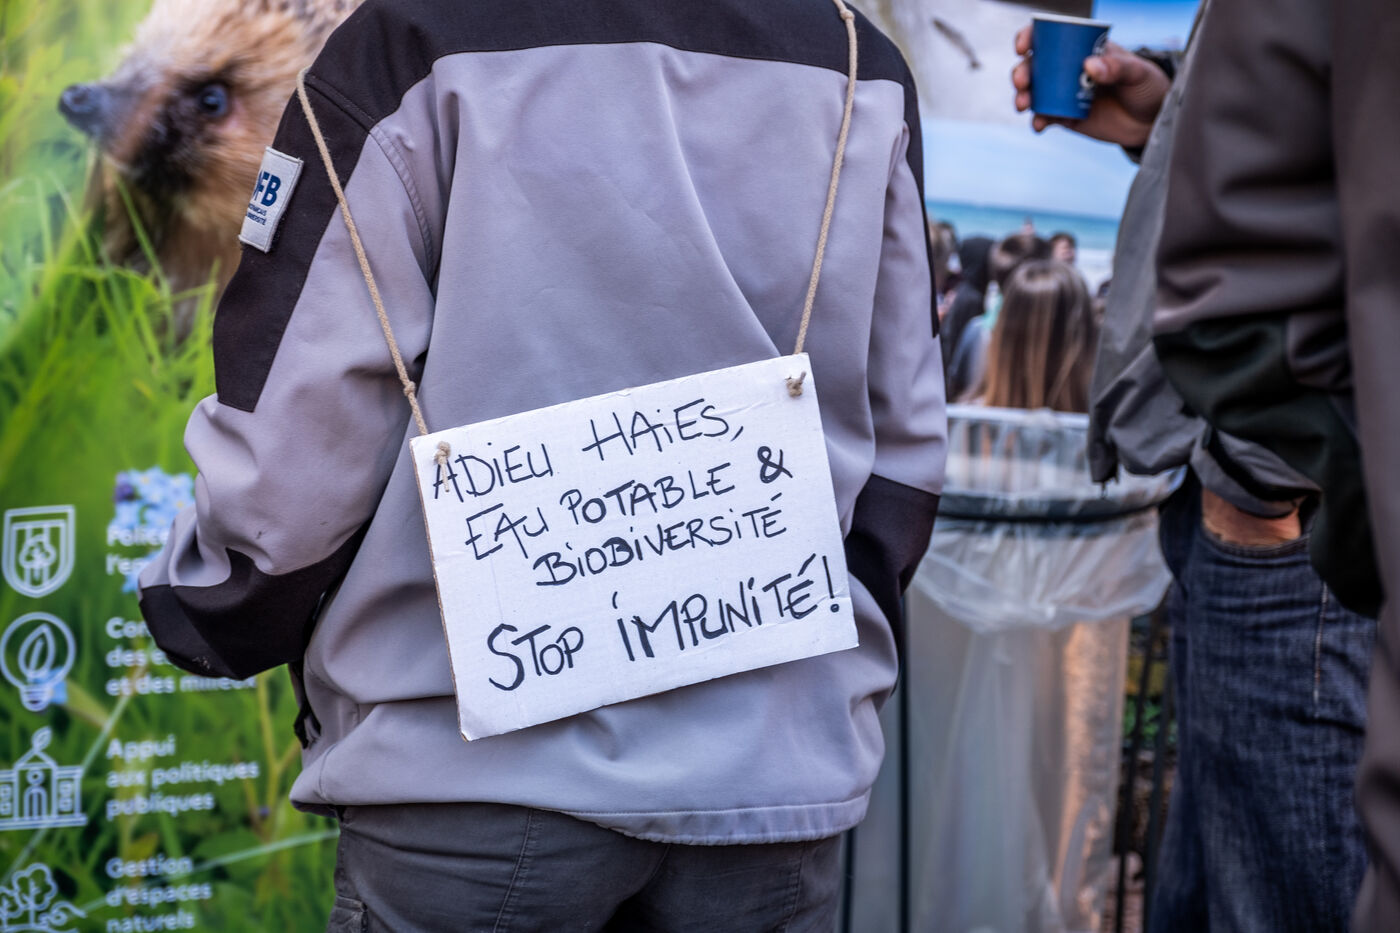 FB
ADIEU HAIES,
EAU POTABLE &
BIODIVERSITÉ
STOP IMPUNITÉ!
Police
Appui
aux politiques
publiques
Gestion
d'espaces
naturels